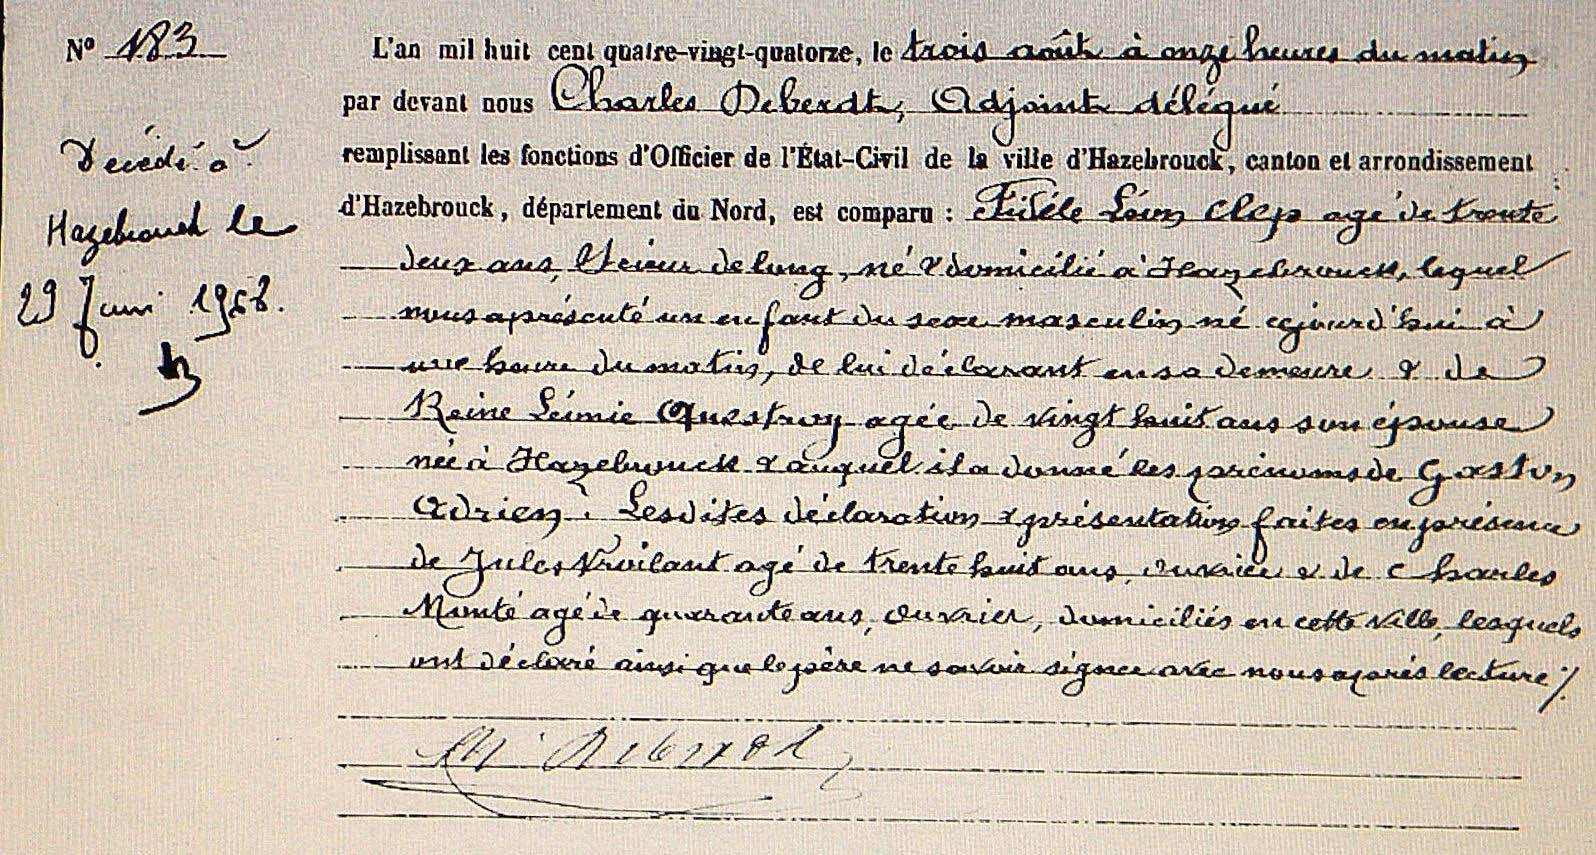 N° 183
L'an mil huit cent quatre-vingt-quatorze, le trois août à onze heures du matin
par devant nous Charles Deberdt, Adjoint délégué
remplissant les fonctions d'Officier de l'État-Civil de la ville d'Hazebrouck, canton et arrondissement
d'Hazebrouck, département du Nord, est comparu : Fidèle Léon Clep agé de trente
deux ans, Scieur de long, né & domicilié à Hazebrouck, lequel
nous a présenté un enfant du sexe masculin né cejourd'hui à
une heure du matin, de lui déclarant en sa demeure & de
Reine Léonie Questroy agée de vingt huit ans son épouse
née à Hazebrouck & auquel il a donné les prénoms de Gaston
Adrien. Lesdites déclaration & présentation faites en présence
de Jules Vroilant agé de trente huit ans, ouvrier & de Charles
Monté agé de quarante ans, ouvrier, domiciliés en cette ville, lesquels
ont déclaré ainsi que le père ne savoir signer avec nous après lecture ./.
Ch. Deberdt
Décédé à
Hazebrouck le
29 Juin 1968.